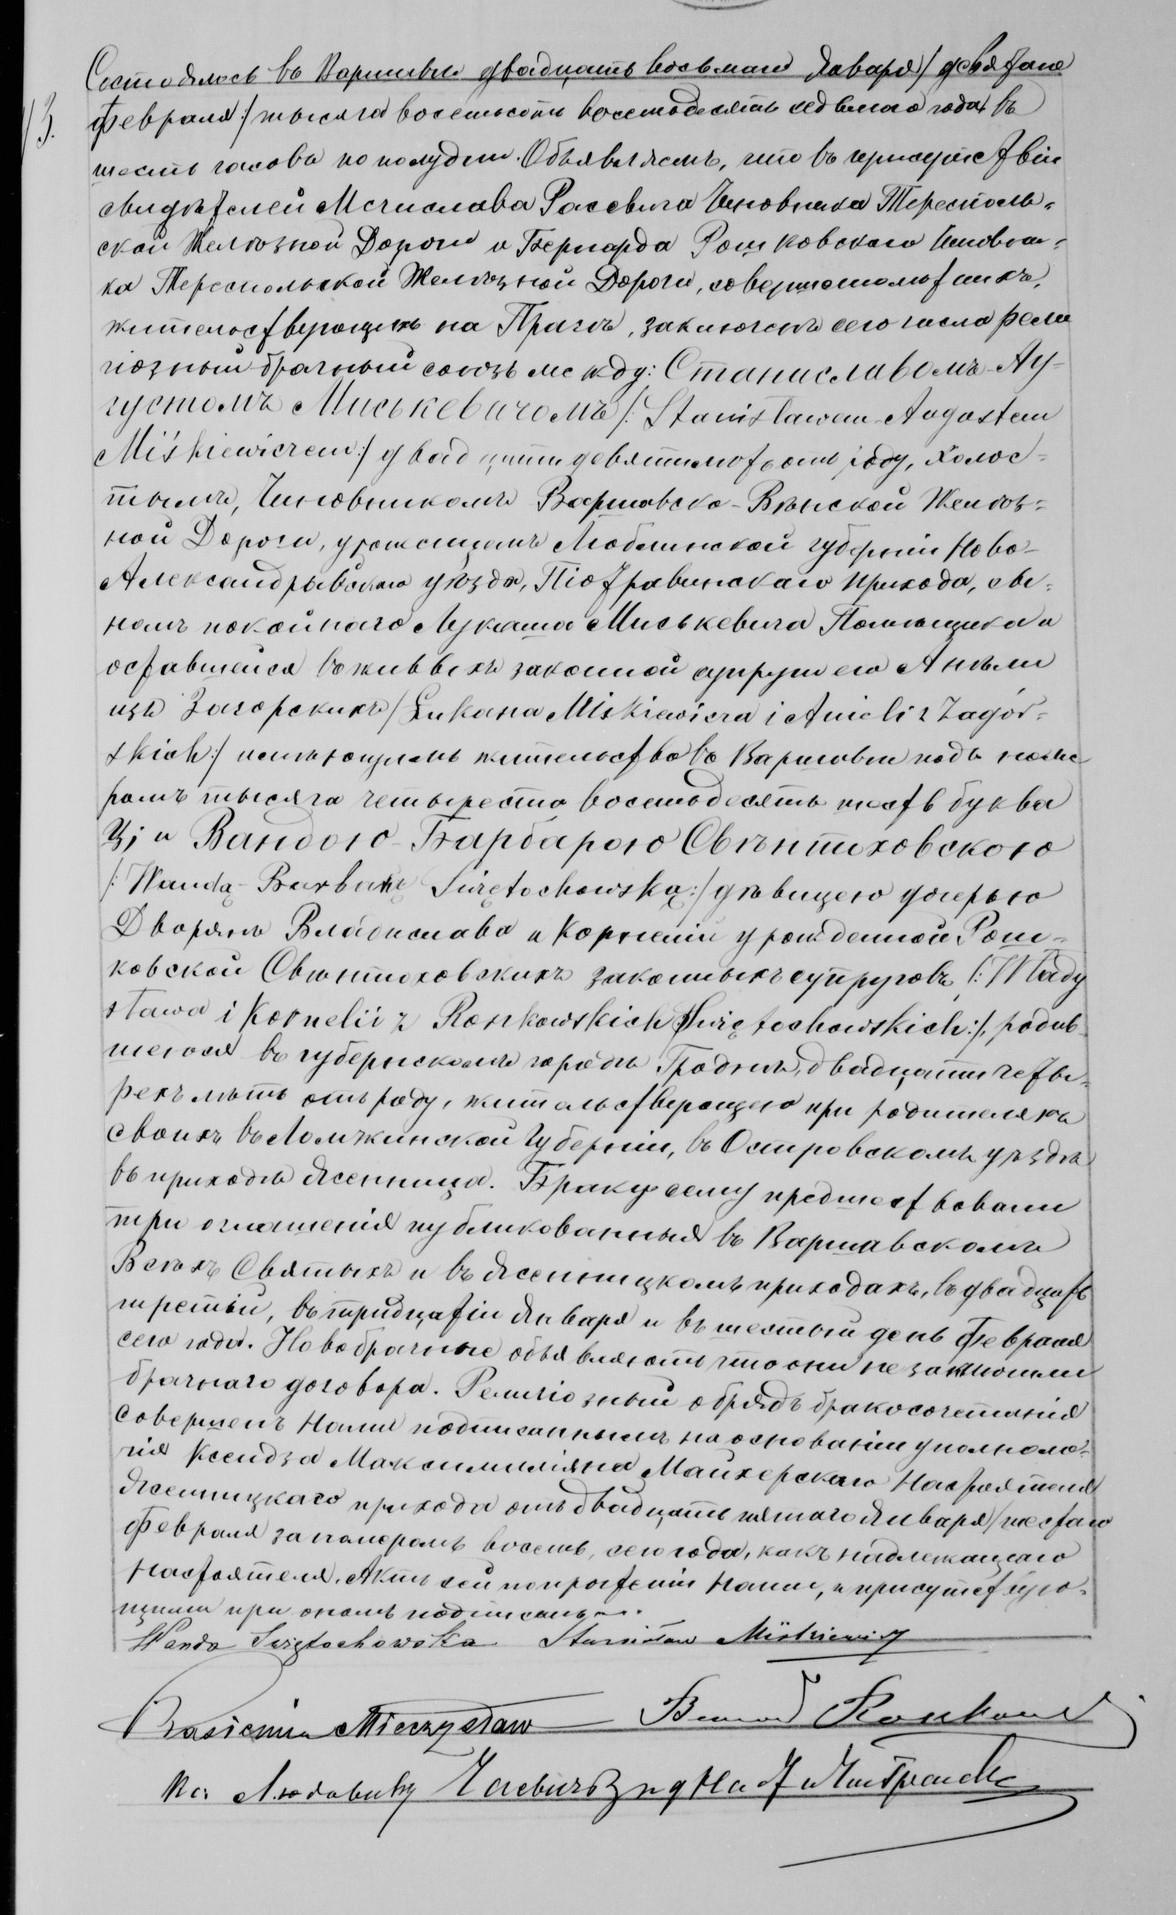 Состоялось въ Варшавѣ двадцать восьмаго Января /: девятаго
13.
Февраля :/ тысяча восемьсотъ восемьдесятъ седьмаго года въ
шесть часовъ по полудни. Объявляемъ, что въ присутствіи
свидѣтелей Мечислава Расевича Чиновника Тересполь-
ской Желѣзной Дороги и Бернарда Рошковскаго Чиновни-
ка Тереспольской Желѣзной Дороги, совершеннолѣтнихъ,
жительствующихъ на Прагѣ, заключенъ сего числа рели
гіозный брачный союзъ между: Станиславомъ-Ав-
густомъ Миськевичомъ /: Stanisławem-Augustem
Miśkiewiczem :/ двадцати девяти лѣтъ отъ роду, холос-
тымъ, Чиновникомъ Варшавско-Вѣнской Желѣз-
ной Дороги, урожденнымъ Люблинской губерніи Ново-
Александрійскаго уѣзда, Піотравинскаго прихода, сы-
номъ покойнаго Лукаша Миськевича Помѣщика и
оставшейся въ живыхъ законной супруги его Анели
изъ Загорскихъ /: Łukasza Miśkiewicza i Anieli z Zagór-
skich :/ имѣющимъ жительство въ Варшавѣ подъ номе
ромъ тысяча четыреста восемьдесятъ шесть буква
Ц; и Вандою-Барбарою Свѣнтоховскою
/: Wandą-Barbarą Świętochowską :/ дѣвицею дочерью
Дворянъ Владислава и Корнеліи урожденной Рош-
ковской Свѣнтоховскихъ законныхъ супруговъ, /: Włady
sława i Kornelii z Roszkowskich Świętochowskich :/, родив-
шеюся въ губернскомъ городѣ Гроднѣ, двадцати четы-
рехъ лѣтъ отъ роду, жительствующею при родителяхъ
своихъ въ Ломжинской Губерніи, въ Островскомъ уѣздѣ
въ приходѣ Ясеница. Браку сему предшествовали
три оглашенія публикованныя въ Варшавскомъ
Всѣхъ Святыхъ и въ Ясеницкомъ приходахъ, въ двадцать
третій, въ тридцатый Января и въ шестый день Февраля
сего года. Новобрачные объявляютъ что они не заключили
брачнаго договора. Религіозный обрядъ бракосочетанія
совершенъ Нами подписаннымъ на основаніи уполномо-
чія Ксендза Максимиліяна Майхерскаго Настоятеля
Ясеницкаго прихода отъ двадцать пятаго Января / шестаго
Февраля за номеромъ восемь, сего года, какъ надлежащаго
Настоятеля. Актъ сей по прочтеніи Нами, и присутствую-
щими при ономъ подписанъ.
Wanda Świętochowska Stanisław Miśkiewicz
Rasiewicz Mieczysław Bernard Roszkowski
Кс: Людовикъ